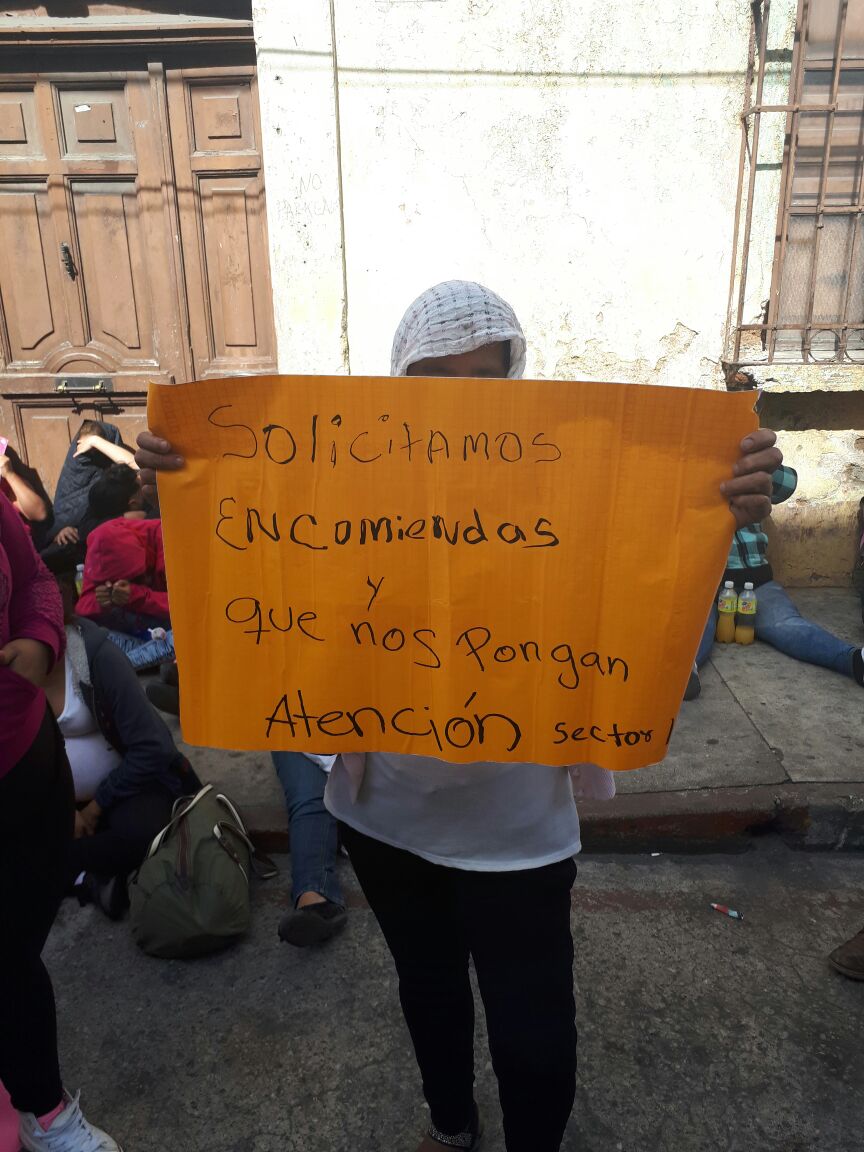 Solicitamos
Encomiendas
y
que nos Pongan
Atención sector 1
NO